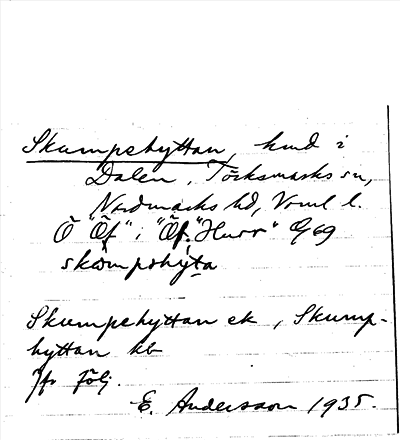 Skumpehyttan, hmd i
Dalen, Töcksmarks sn,
Nordmarks hd, Vrml l.
Ö "Öf" i "Öf. Hurr" 9/69
skœmpohy̱ta
Skumpehyttan ek, Skump-
hyttan kb
Jfr följ.
E. Andersson 1935.